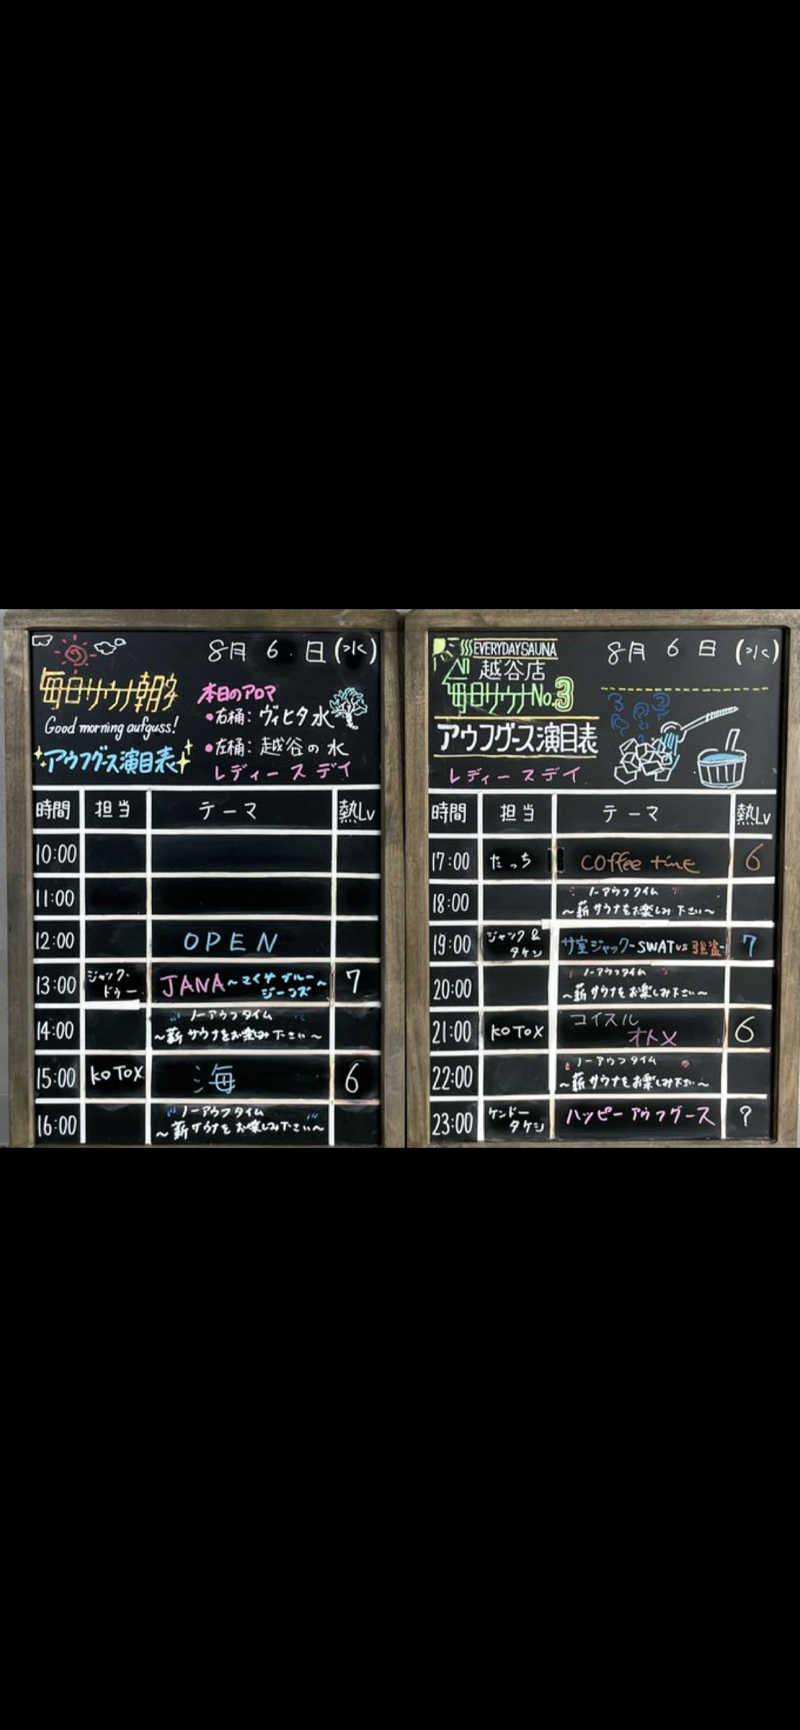 8月 6 日(水)
毎日サウナ朝
Good morning aufguss!
アウフグース演目表
本日のアロマ
●右桶:ヴィヒタ水
●左桶:越谷の水
レディースデイ
時間 担当 テーマ 熱Lv
10:00
11:00
12:00 OPEN
13:00 ジャック・ドゥー JANA~さくザブルージーンズ~ 7
14:00 ノーアウフタイム
~薪サウナをお楽しみ下さい~
15:00 KOTOX 海 6
16:00 ノーアウフタイム
~薪サウナをお楽しみ下さい~
EVERYDAY SAUNA
越谷店
毎日サウナNo.3
8月 6 日(水)
アウフグース演目表
レディースデイ
時間 担当 テーマ 熱Lv
17:00 たっち coffee time 6
18:00 ノーアウフタイム
~薪サウナをお楽しみ下さい~
19:00 ジャック&タケシ サ室ジャック-SWAT vs 強盗- 7
20:00 ノーアウフタイム
~薪サウナをお楽しみ下さい~
21:00 KOTOX コイスルオトメ 6
22:00 ノーアウフタイム
~薪サウナをお楽しみ下さい~
23:00 ケンドータケシ ハッピーアウフグース ?